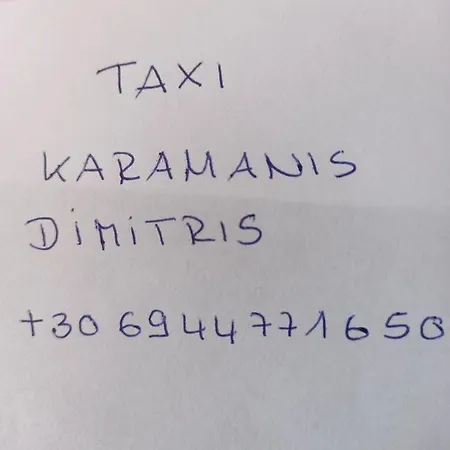 TAXI
KARAMANIS
DiMiTRIS
+30 6944771650